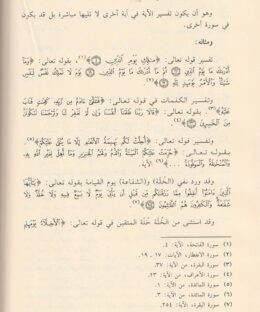 وهو أن يكون تفسير الآية في آية أخرى لا تليها مباشرة بل قد يكون
في سورة أخرى.
ومثاله:
تفسير قوله تعالى: ﴿مَٰلِكِ يَوْمِ ٱلدِّينِ﴾(١)، بقوله تعالى: ﴿وَمَآ
أَدْرَىٰكَ مَا يَوْمُ ٱلدِّينِ ثُمَّ مَآ أَدْرَىٰكَ مَا يَوْمُ ٱلدِّينِ يَوْمَ لَا تَمْلِكُ نَفْسٌ لِّنَفْسٍ
شَيْـًٔا وَٱلْأَمْرُ يَوْمَئِذٍ لِّلَّهِ﴾(٢).
وتفسير الكلمات في قوله تعالى: ﴿فَتَلَقَّىٰٓ ءَادَمُ مِن رَّبِّهِۦ كَلِمَٰتٍ فَتَابَ
عَلَيْهِ﴾(٣) بقوله تعالى: ﴿قَالَا رَبَّنَا ظَلَمْنَآ أَنفُسَنَا وَإِن لَّمْ تَغْفِرْ لَنَا وَتَرْحَمْنَا لَنَكُونَنَّ
مِنَ ٱلْخَٰسِرِينَ﴾(٤).
وتفسير قوله تعالى: ﴿أُحِلَّتْ لَكُم بَهِيمَةُ ٱلْأَنْعَٰمِ إِلَّا مَا يُتْلَىٰ عَلَيْكُمْ﴾(٥)،
بقوله تعالى: ﴿حُرِّمَتْ عَلَيْكُمُ ٱلْمَيْتَةُ وَٱلدَّمُ وَلَحْمُ ٱلْخِنزِيرِ وَمَآ أُهِلَّ لِغَيْرِ ٱللَّهِ بِهِۦ
وَٱلْمُنْخَنِقَةُ وَٱلْمَوْقُوذَةُ ...﴾(٦) الآية.
وقد ورد نفي (الخُلَّة) و(الشفاعة) يوم القيامة بقوله تعالى: ﴿يَٰٓأَيُّهَا
ٱلَّذِينَ ءَامَنُوٓا۟ أَنفِقُوا۟ مِمَّا رَزَقْنَٰكُم مِّن قَبْلِ أَن يَأْتِىَ يَوْمٌ لَّا بَيْعٌ فِيهِ وَلَا خُلَّةٌ وَلَا
شَفَٰعَةٌ وَٱلْكَٰفِرُونَ هُمُ ٱلظَّٰلِمُونَ﴾(٧).
وقد استثنى من الخُلَّة خُلّة المتقين في قوله تعالى: ﴿ٱلْأَخِلَّآءُ يَوْمَئِذٍۭ
(١) سورة الفاتحة، الآية: ٤.
(٢) سورة الانفطار، الآيات: ١٧ ـ ١٩.
(٣) سورة البقرة، من الآية: ٣٧.
(٤) سورة الأعراف، من الآية: ٢٣.
(٥) سورة المائدة، من الآية: ١.
(٦) سورة المائدة، من الآية: ٣.
(٧) سورة البقرة، الآية: ٢٥٤.